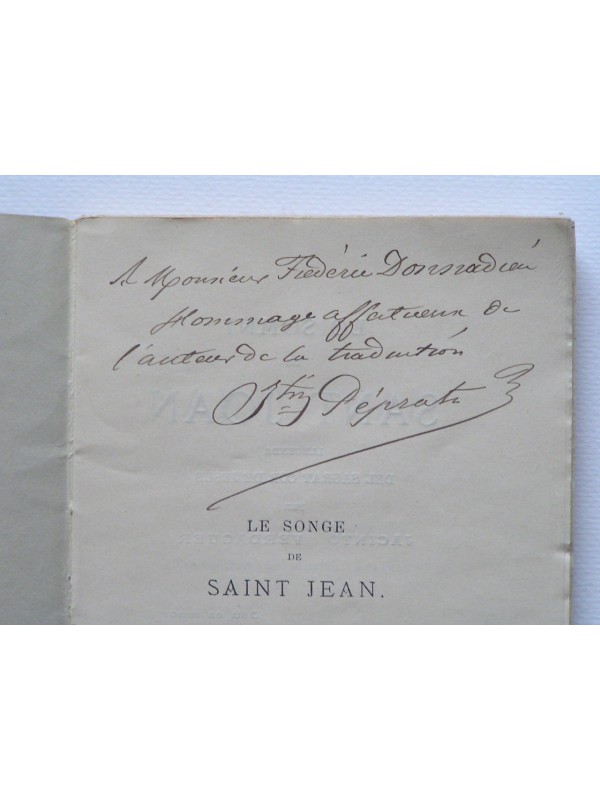 A Monsieur Frédéric Donnadieu
Hommage affectueux de
l'auteur de la traduction
Jtin Pépratx
LE SONGE
DE
SAINT JEAN.